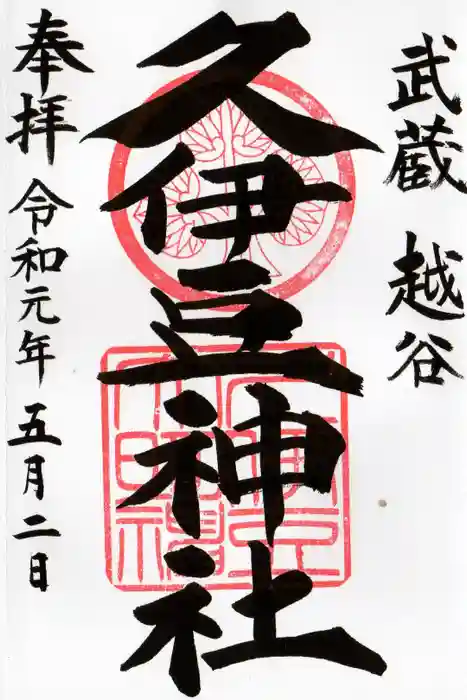 武蔵 越谷
久伊豆神社
奉拝 令和元年 五月二日